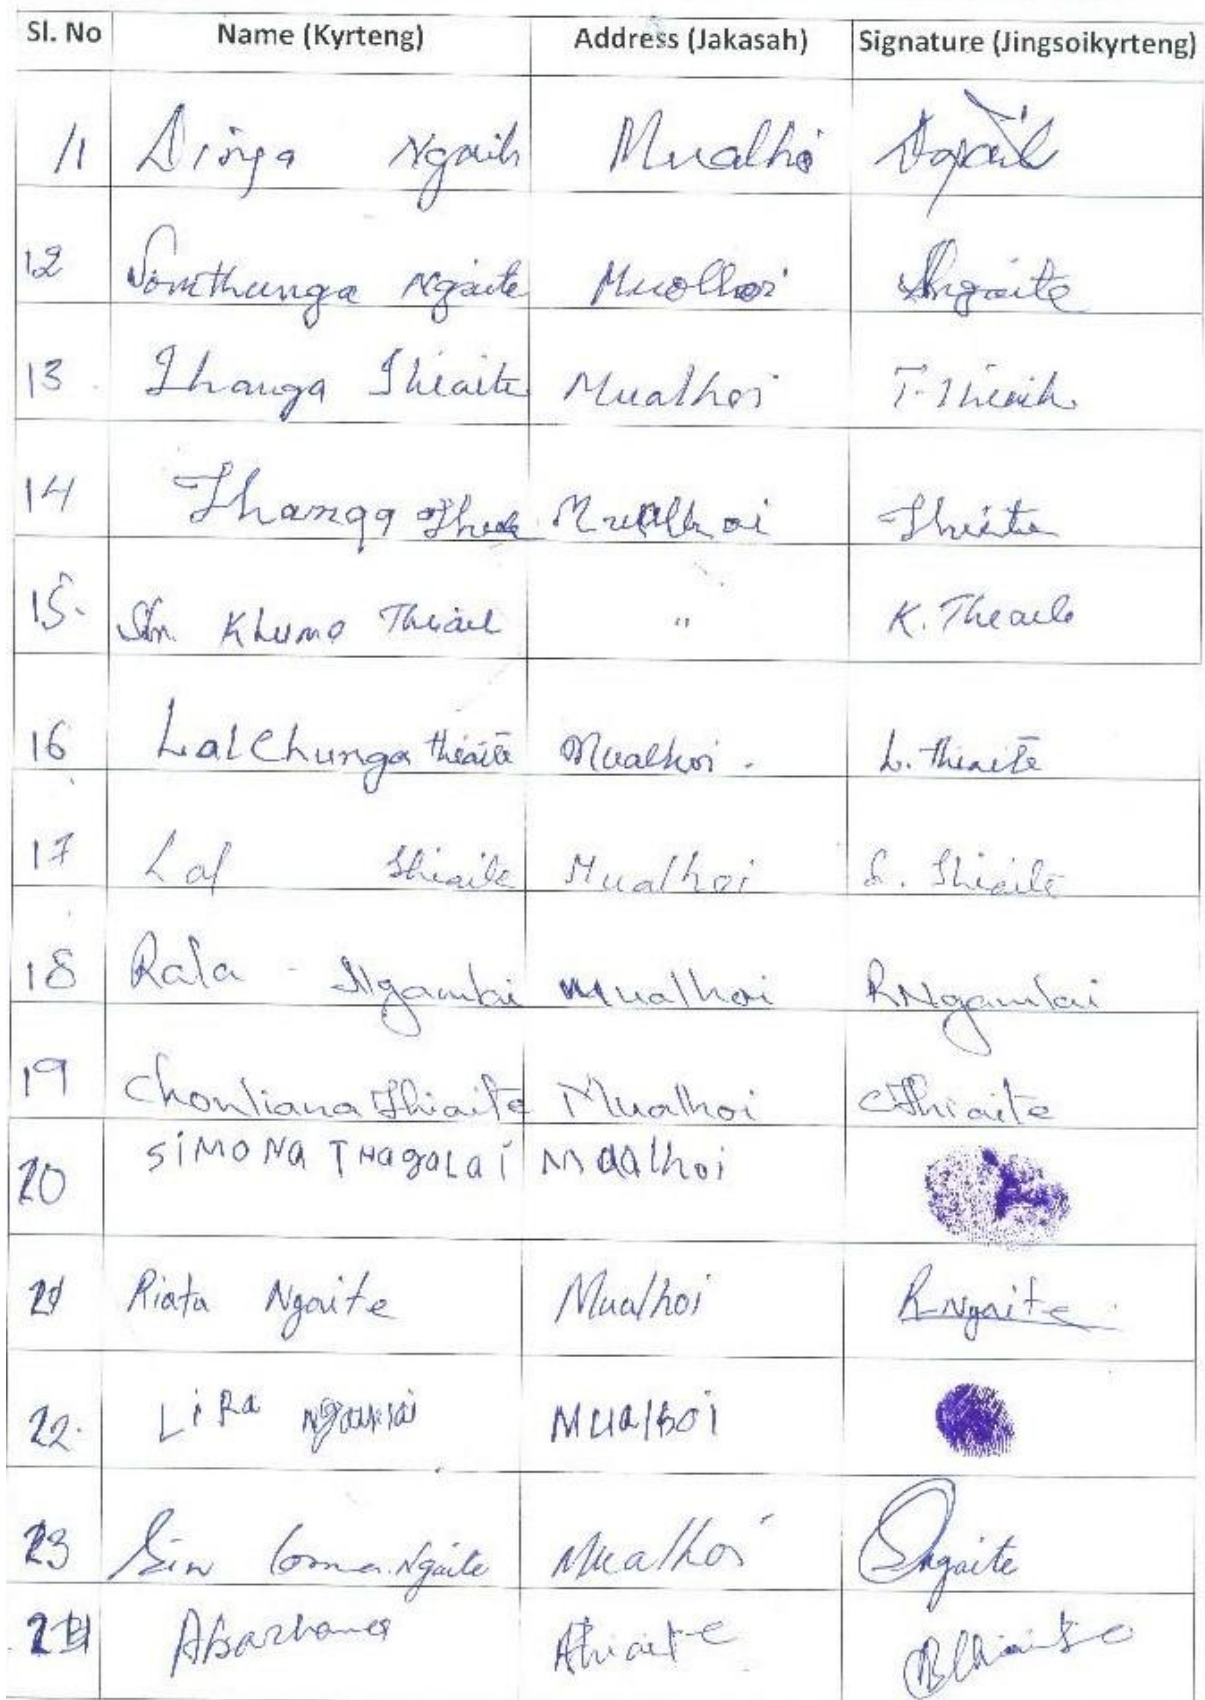 Sl. No Name (Kyrteng) Address (Jakasah) Signature (Jingsoikyrteng)
11 Dinga Ngaih Mualhoi
12 Vomthunga Ngaite Muolhoi Ngaite
13 Thanga Thiaite Mualhoi T. Thiaite
14 Thanga Mualhoi Thiaite
15. Khumo Thiaite " K. Theaile
16 Lalchunga thiaite Mualhoi. L. thiaite
17 Lal Thiaite Mualhoi L. Thiaite
18 Rala - Ngamlai Mualhoi RNgamlai
19 Chonliana Thiaite Mualhoi CThiaite
20 SiMONa THagoLai Maalhoi
21 Riata Ngaite Mualhoi R Ngaite
22. LiRa Mualhoi
23 Ngaite Mualhoi Ngaite
24